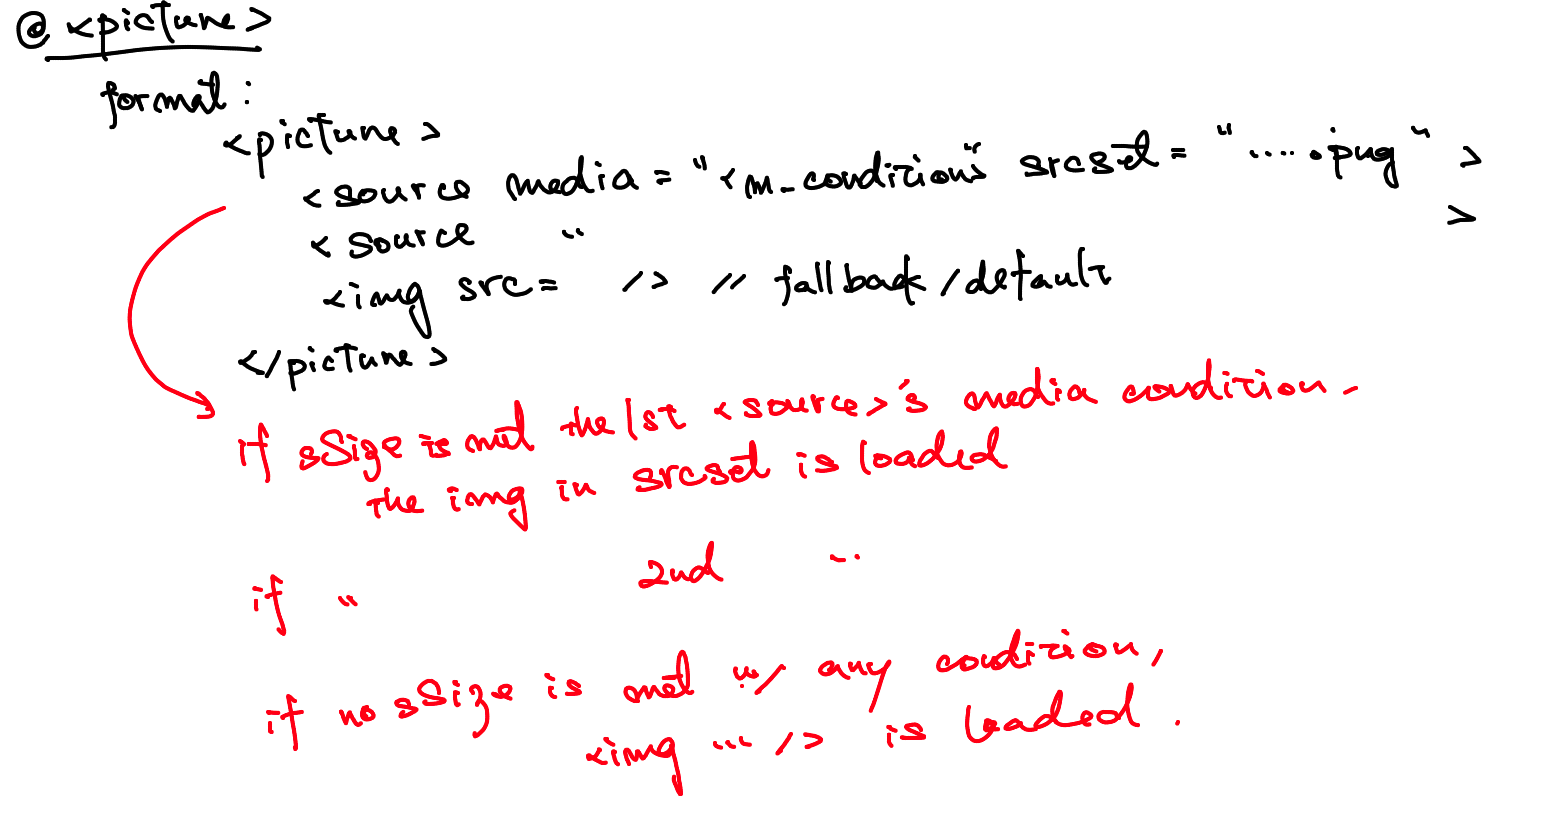 @ <picture>
format :
<picture>
<source media = "<m_condition>" srcset = ".....png" >
<source " >
<img src = /> // fallback/default
</picture>
if sSize is met the 1st <source>'s media condition.
the img in srcset is loaded
if " 2nd ..
if no sSize is met w/ any condition,
<img ... /> is loaded.